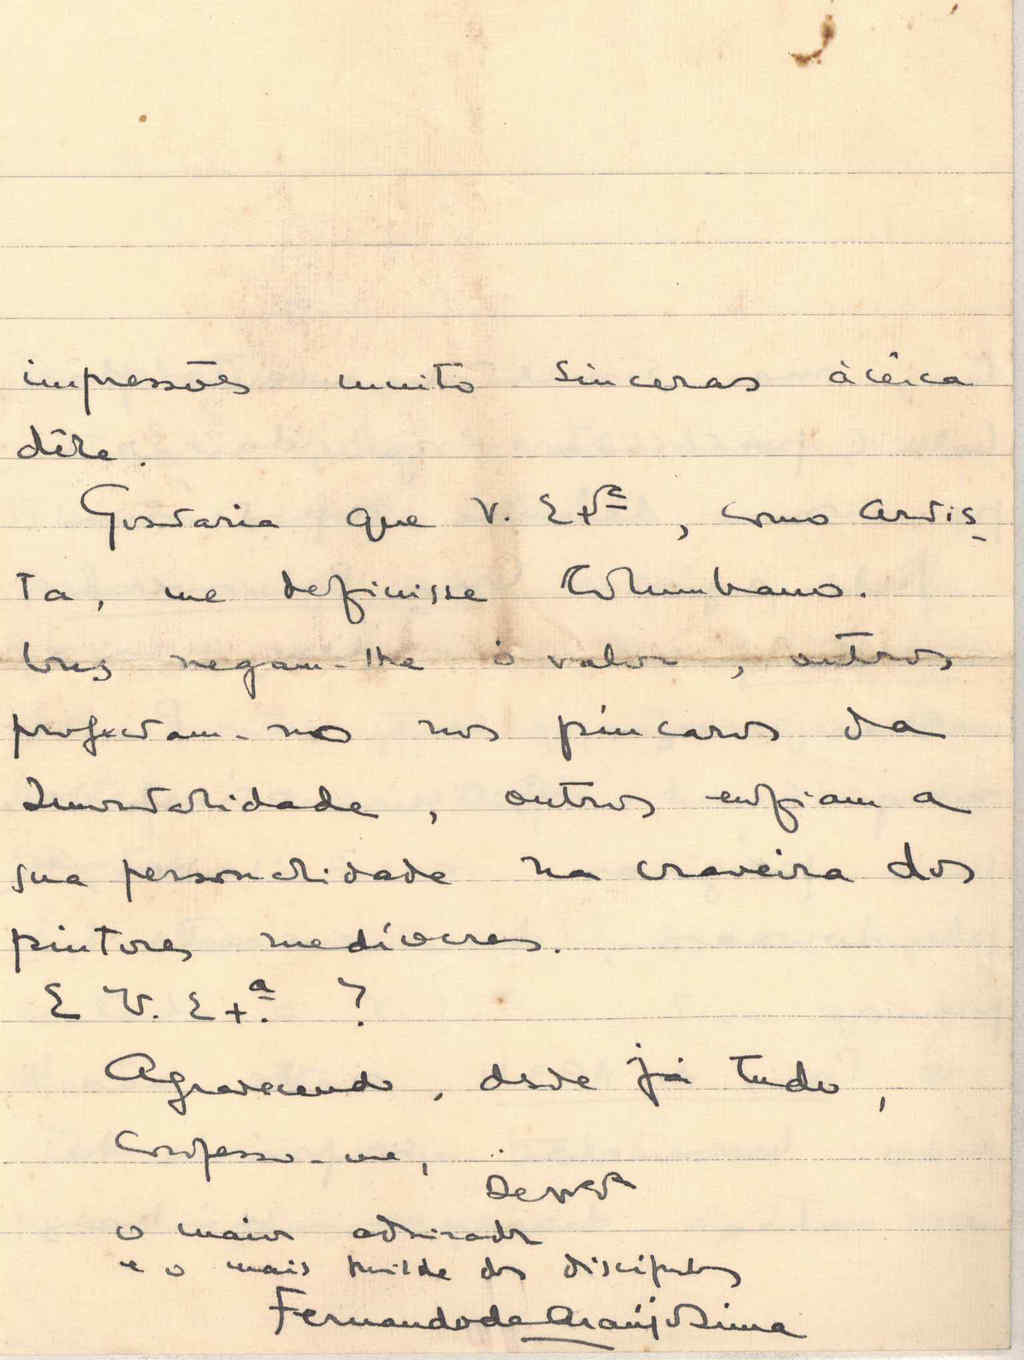 impressões muito sinceras àcêrca
dêle.
Gostaria que V. Ex.ª, como artis-
ta, me definisse Columbano.
Uns negam-lhe o valor, outros
projectam-no nos píncaros da
Imortalidade, outros enfiam a
sua personalidade na craveira dos
pintores medíocres.
E V. Ex.ª ?
Agradecendo, desde já tudo,
Confesso-me,
De V. Ex.ª
o maior admirador
e o mais humilde dos discípulos
Fernando de Araújo Lima